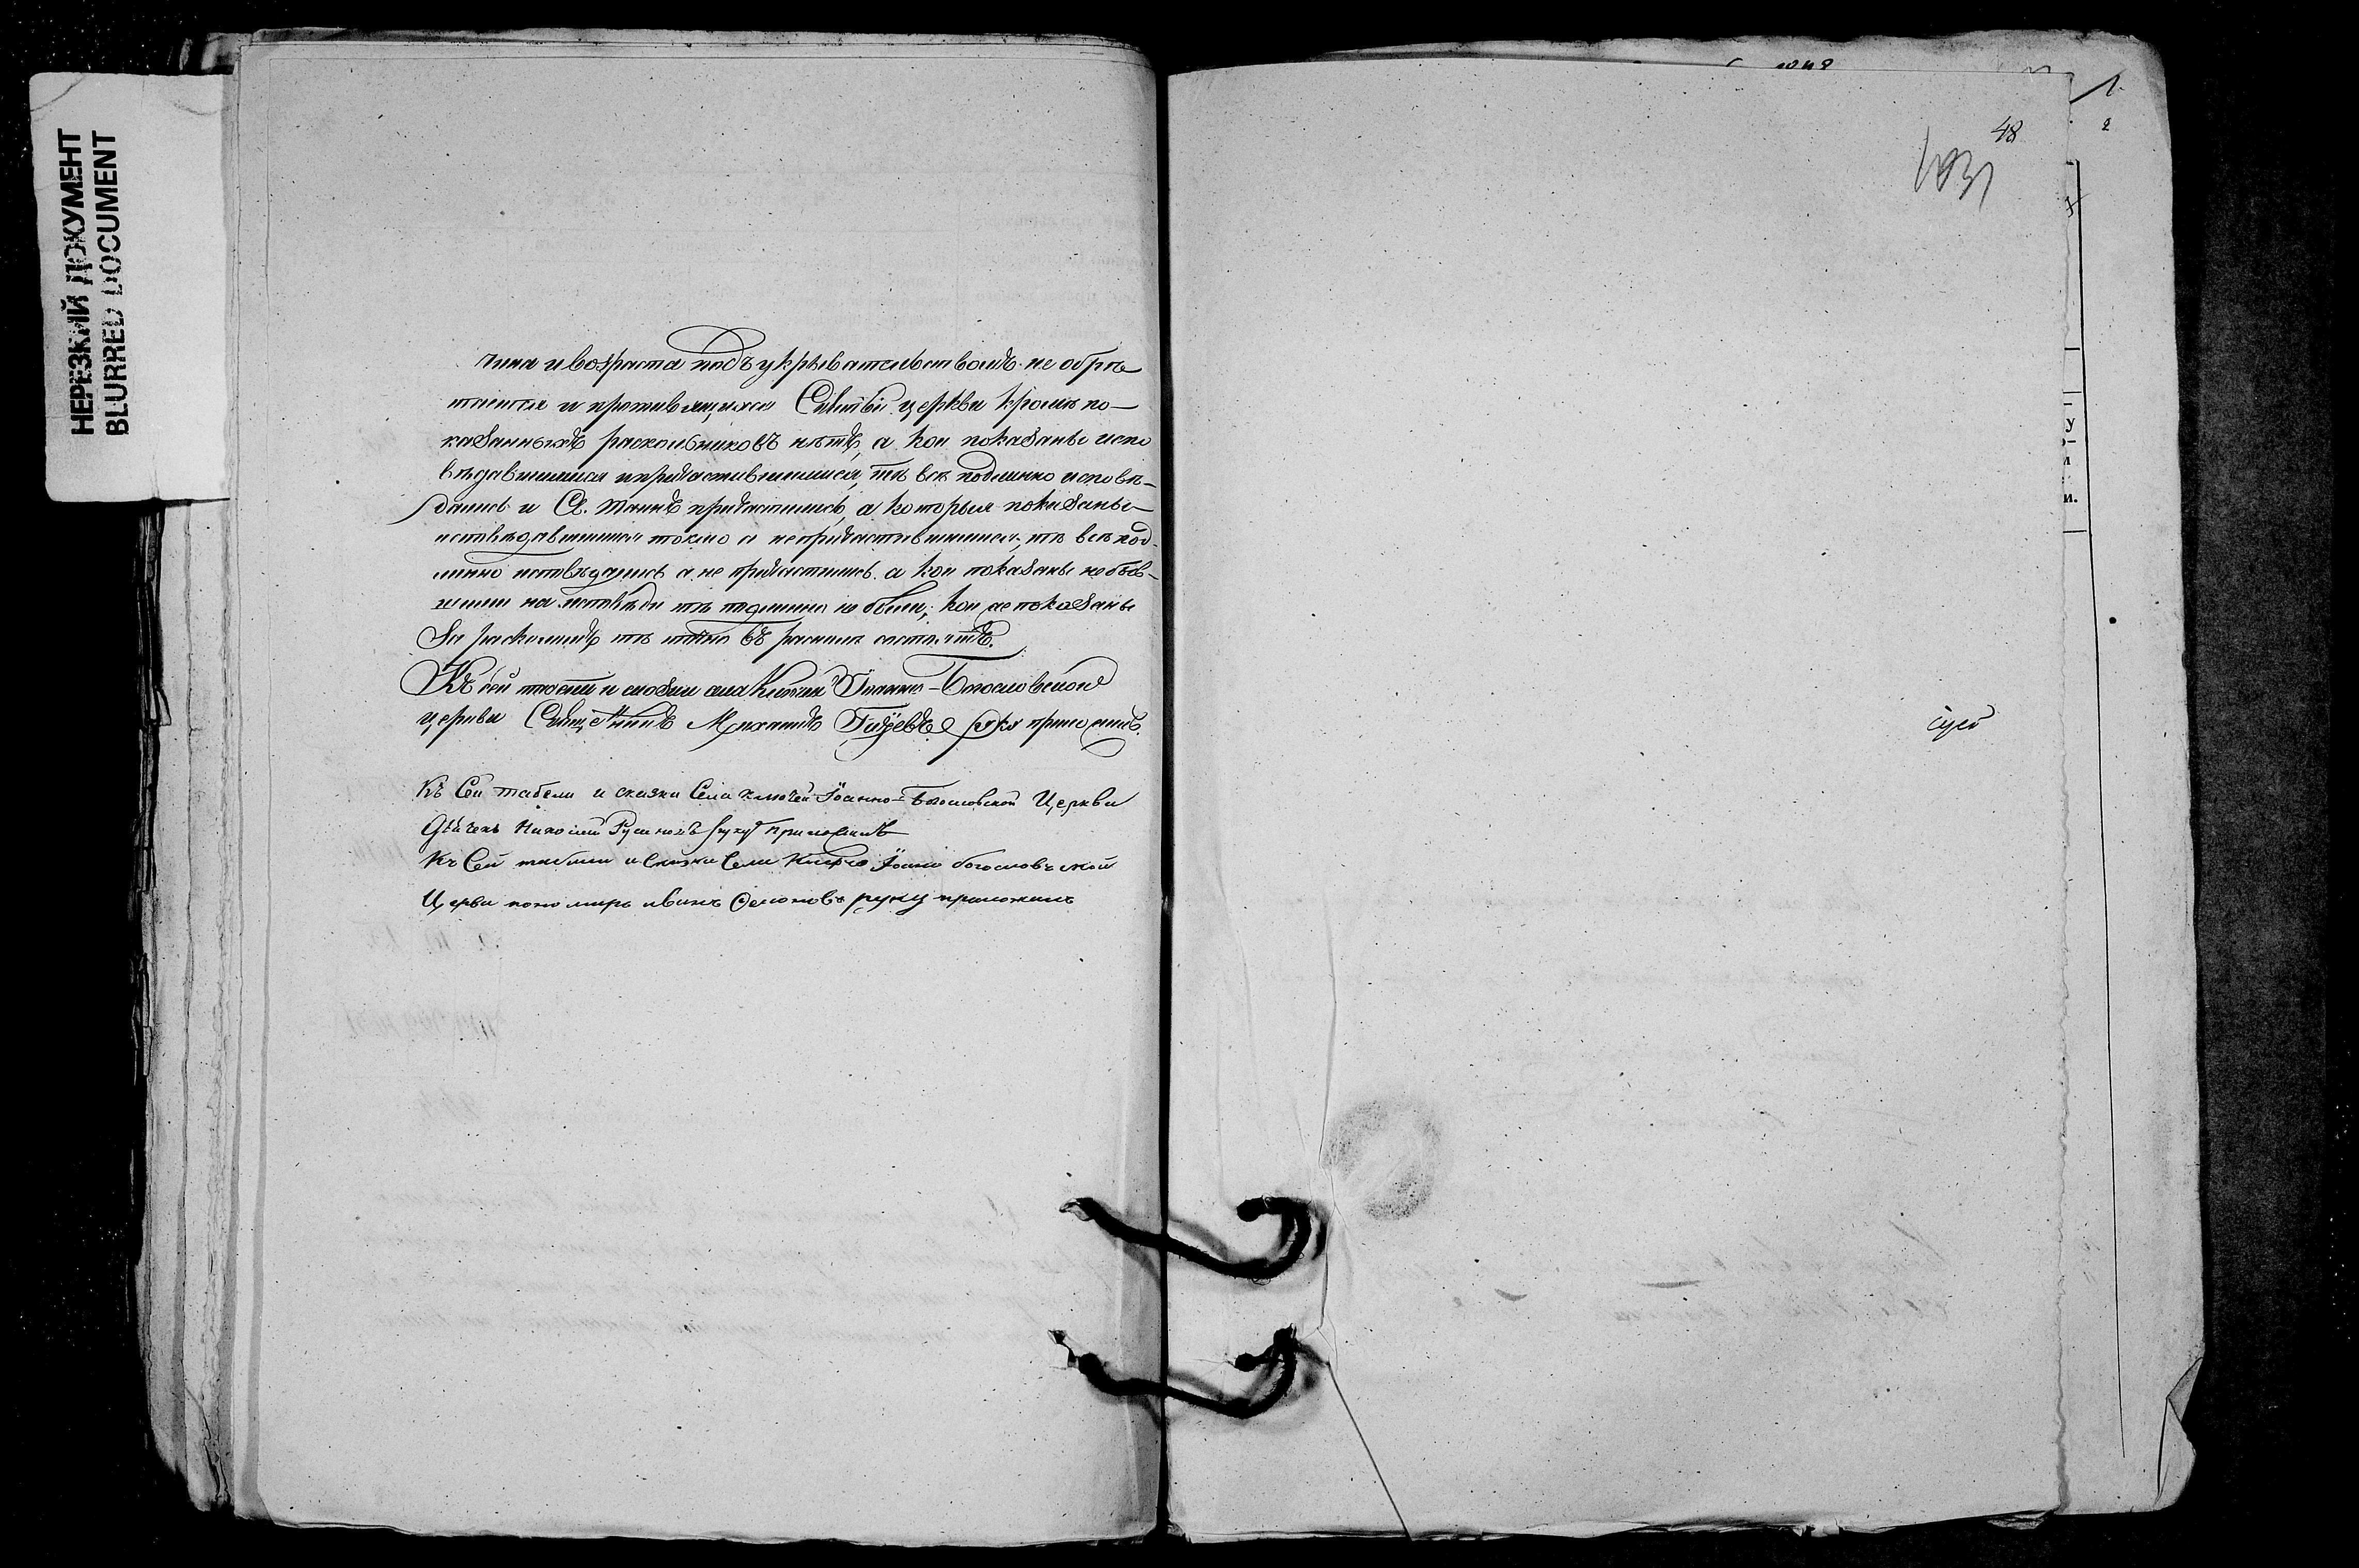 НЕРЕЗКИЙ ДОКУМЕНТ
BLURRED DOCUMENT
чина и возраста подъ укрывательствомъ не обрѣ
тается и противящихся Святѣй церкви кромѣ по-
казанныхъ раскольниковъ нѣтъ, а кои показаны испо
вѣдавшимися и причастившимися, тѣ всѣ подлинно исповѣ-
дались и Св. Таинъ причастились, а которыя показаны
исповѣдавшимися токмо а не причастившимися, тѣ всѣ под-
линно исповѣдались а не причастились. а кои показаны не быв-
шими на исповѣди тѣ подлинно не были; кои же показаны
за расколомъ тѣ точно въ расколѣ состоятъ.
Къ сей табели и сказки села Ключей Іоанно-Богословской
церкви Священникъ Михаилъ руку приложилъ
Къ Сей табели и сказки Села Ключей Іоанно-Богословской Церкви
Дьячекъ Николай Русановъ руку приложилъ
Къ Сей табели и сказки Села Ключей Іоанно богословъской
Церкви пономарь иванъ Семоновъ руку приложилъ
48
1031
у-
и.